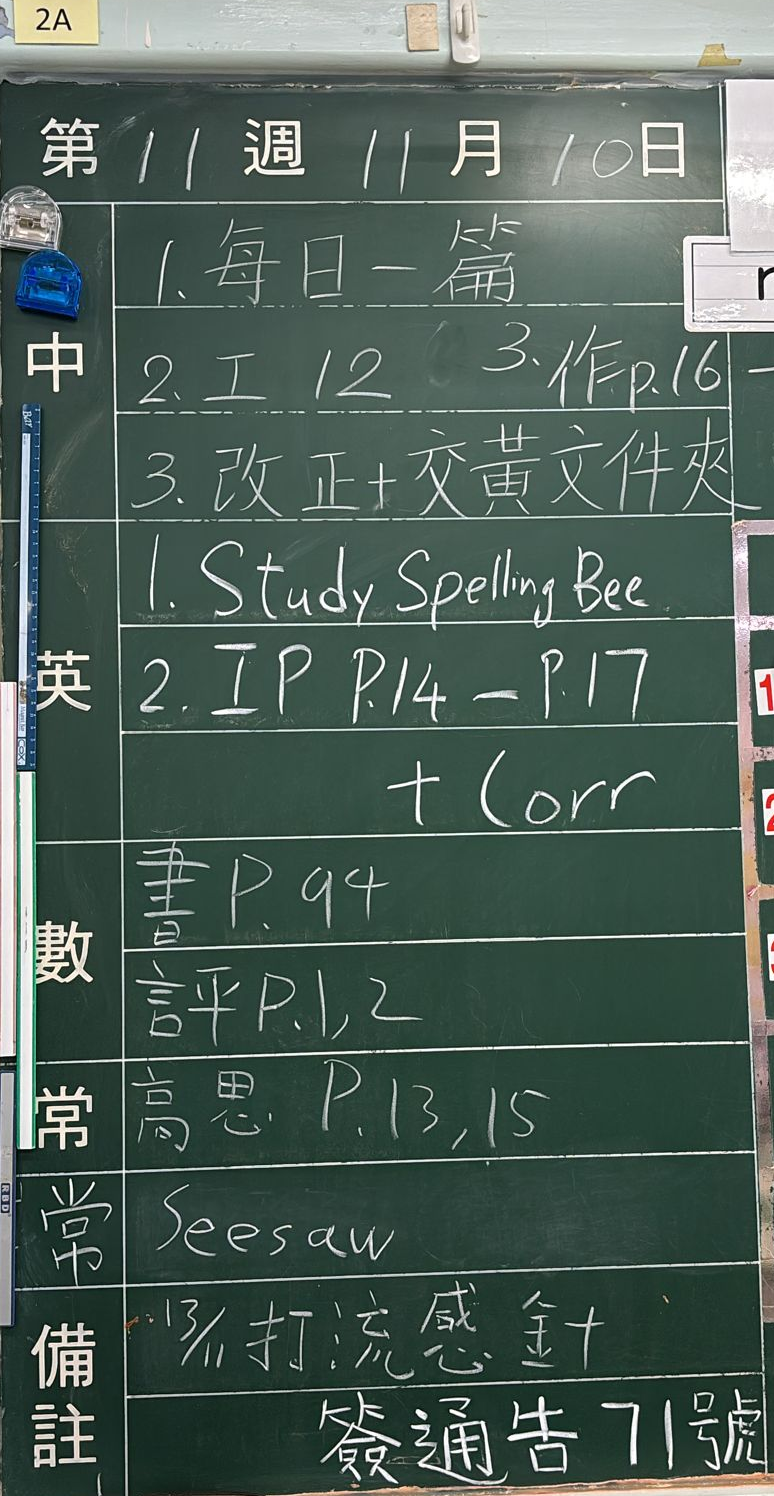 2A
第 11 週 11 月 10 日
中
1. 每日一篇
2. 工 12 3. 作p.16
3. 改正+交黃文件夾
英
1. Study Spelling Bee
2. IP P.14 – P.17
+ Corr
數
書 P. 94
評 P.1, 2
常
高思 P. 13, 15
常
Seesaw
備註
13/11 打流感針
簽通告 71號